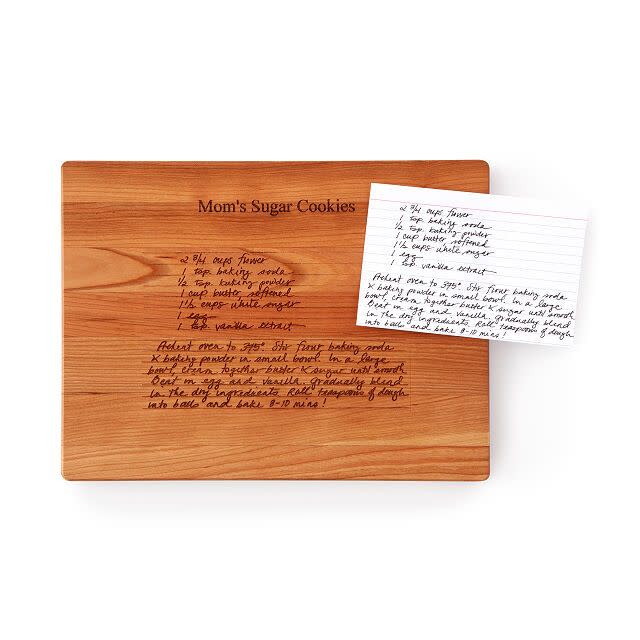 Mom's Sugar Cookies
2 3/4 cups flower
1 tsp. baking soda
1/2 tsp. baking powder
1 cup butter softened
1 1/2 cups white sugar
1 egg
1 tsp. vanilla extract
Preheat oven to 375° Stir flour baking soda
& baking powder in small bowl. In a large
bowl, cream together butter & sugar until smooth
Beat in egg and vanilla. Gradually blend
in the dry ingredients. Roll teaspoons of dough
into balls and bake 8-10 mins!
2 3/4 cups flower
1 tsp. baking soda
1/2 tsp. baking powder
1 cup butter softened
1 1/2 cups white sugar
1 egg
1 tsp. vanilla extract
Preheat oven to 375° Stir flour baking soda
& baking powder in small bowl. In a large
bowl, cream together butter & sugar until smooth
Beat in egg and vanilla. Gradually blend
in the dry ingredients. Roll teaspoons of dough
into balls and bake 8-10 mins!